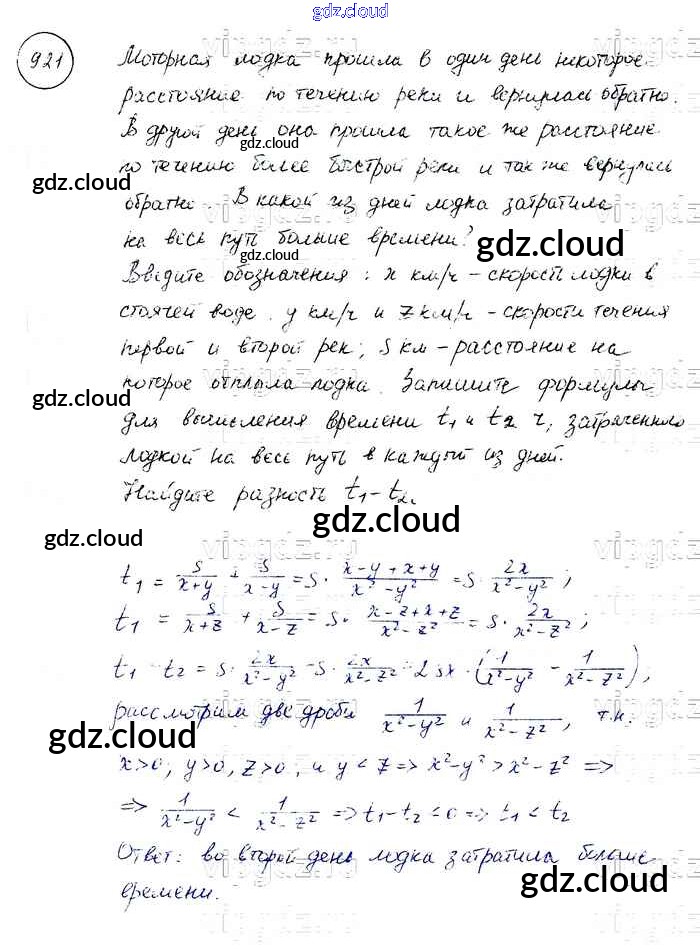 gdz.cloud
921
Моторная лодка прошла в один день некоторое
расстояние по течению реки и вернулась обратно.
В другой день она прошла такое же расстояние
по течению более быстрой реки и также вернулась
обратно. В какой из дней лодка затратила
на весь путь больше времени?
Введите обозначения: x км/ч – скорость лодки в
стоячей воде, y км/ч и z км/ч – скорости течения
первой и второй рек; s км – расстояние на
которое отплыла лодка. Запишите формулы
для вычисления времени t₁ и t₂ ч, затраченного
лодкой на весь путь в каждый из дней.
Найдите разность t₁-t₂.
t₁ = s/(x+y) + s/(x-y) = s · (x-y+x+y)/(x²-y²) = s · 2x/(x²-y²);
t₁ = s/(x+z) + s/(x-z) = s · (x-z+x+z)/(x²-z²) = s · 2x/(x²-z²);
t₁ - t₂ = s · 2x/(x²-y²) - s · 2x/(x²-z²) = 2sx · (1/(x²-y²) - 1/(x²-z²));
рассмотрим две дроби 1/(x²-y²) и 1/(x²-z²), т.к.
x>0, y>0, z>0, и y<z => x²-y² > x²-z² =>
=> 1/(x²-y²) < 1/(x²-z²) => t₁-t₂<0 => t₁<t₂
Ответ: во второй день лодка затратила больше
времени.
gdz.cloud
gdz.cloud
gdz.cloud
gdz.cloud
gdz.cloud
gdz.cloud
gdz.cloud
gdz.cloud
gdz.cloud